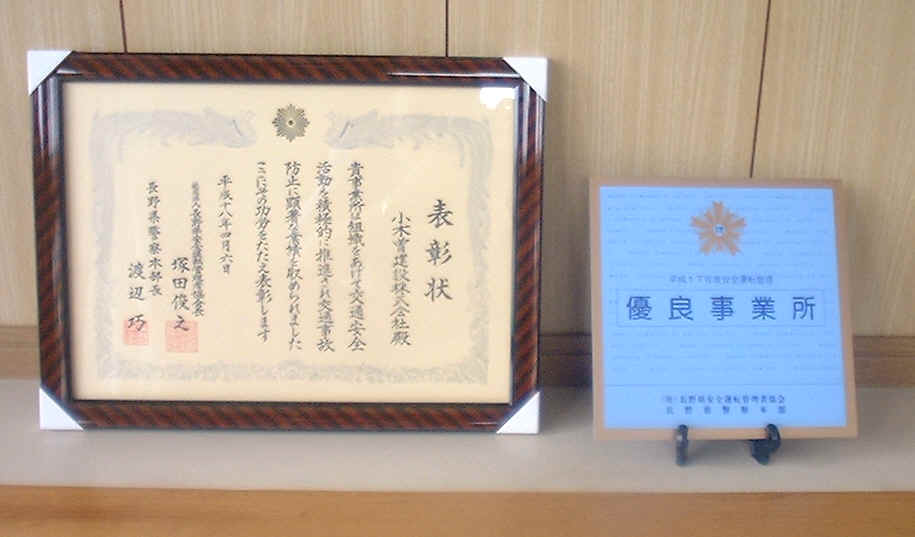 表彰状
小木曽建設株式会社殿
貴事業所は組織をあげて交通安全
活動を積極的に推進され交通事故
防止に顕著な業績を収められました
ここにその功労をたたえ表彰します
平成十八年四月六日
長野県安全運転管理者協会会長
塚田俊之
長野県警察本部長
渡辺巧
平成17年度安全運転管理
優良事業所
(社)長野県安全運転管理者協会
長野県警察本部